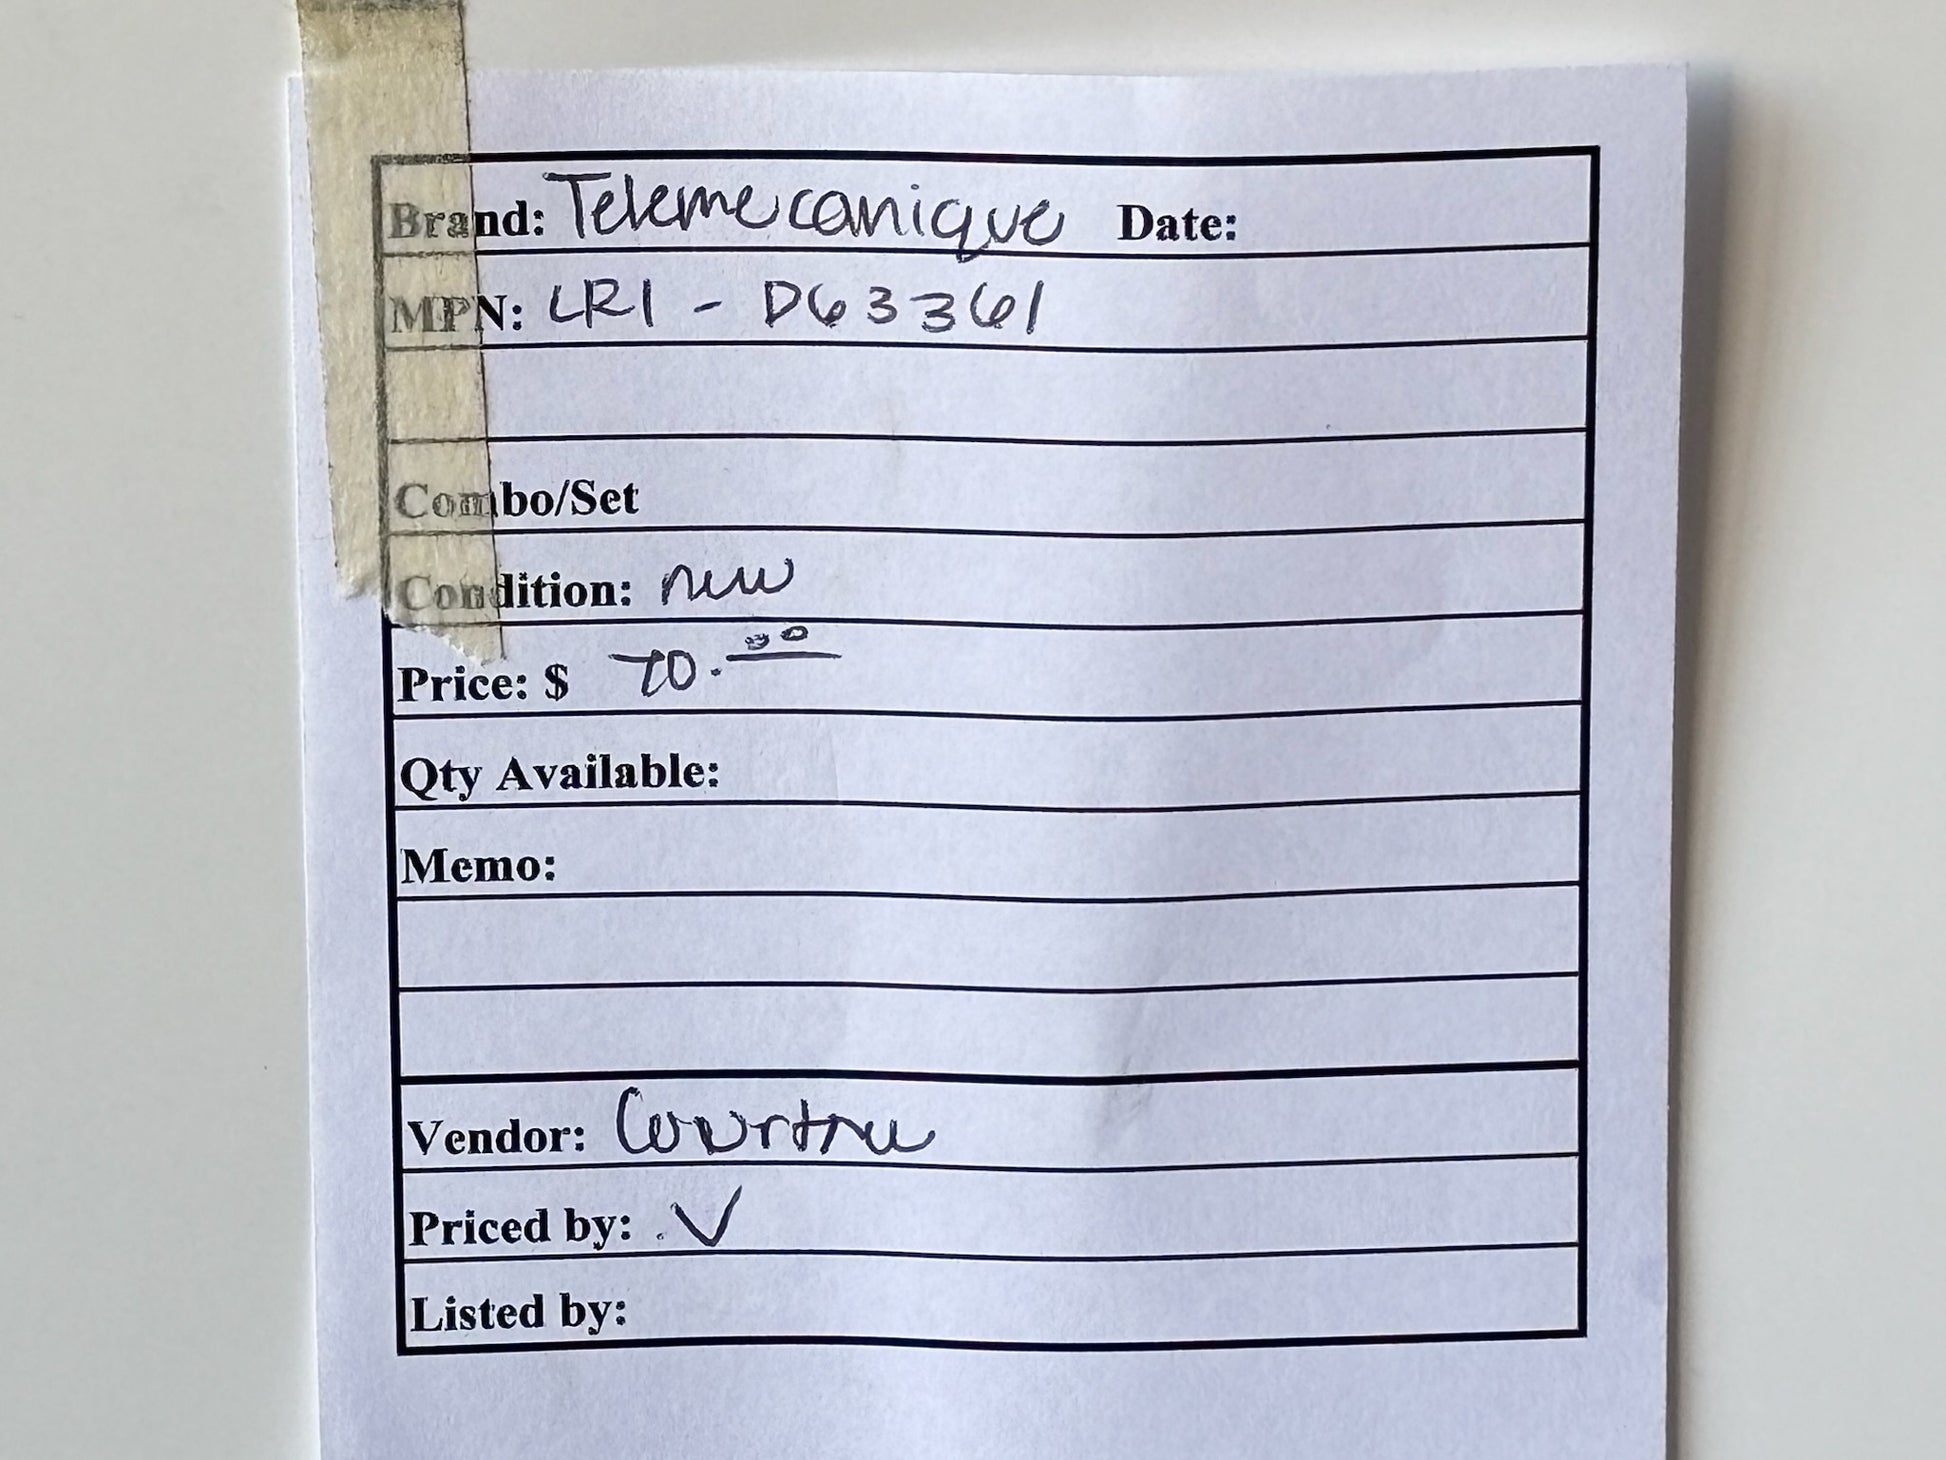 Brand: Telemecanique Date:
MPN: LR1 - D63361
Combo/Set
Condition: new
Price: $ 70.00
Qty Available:
Memo:
Vendor:
Priced by: V
Listed by: